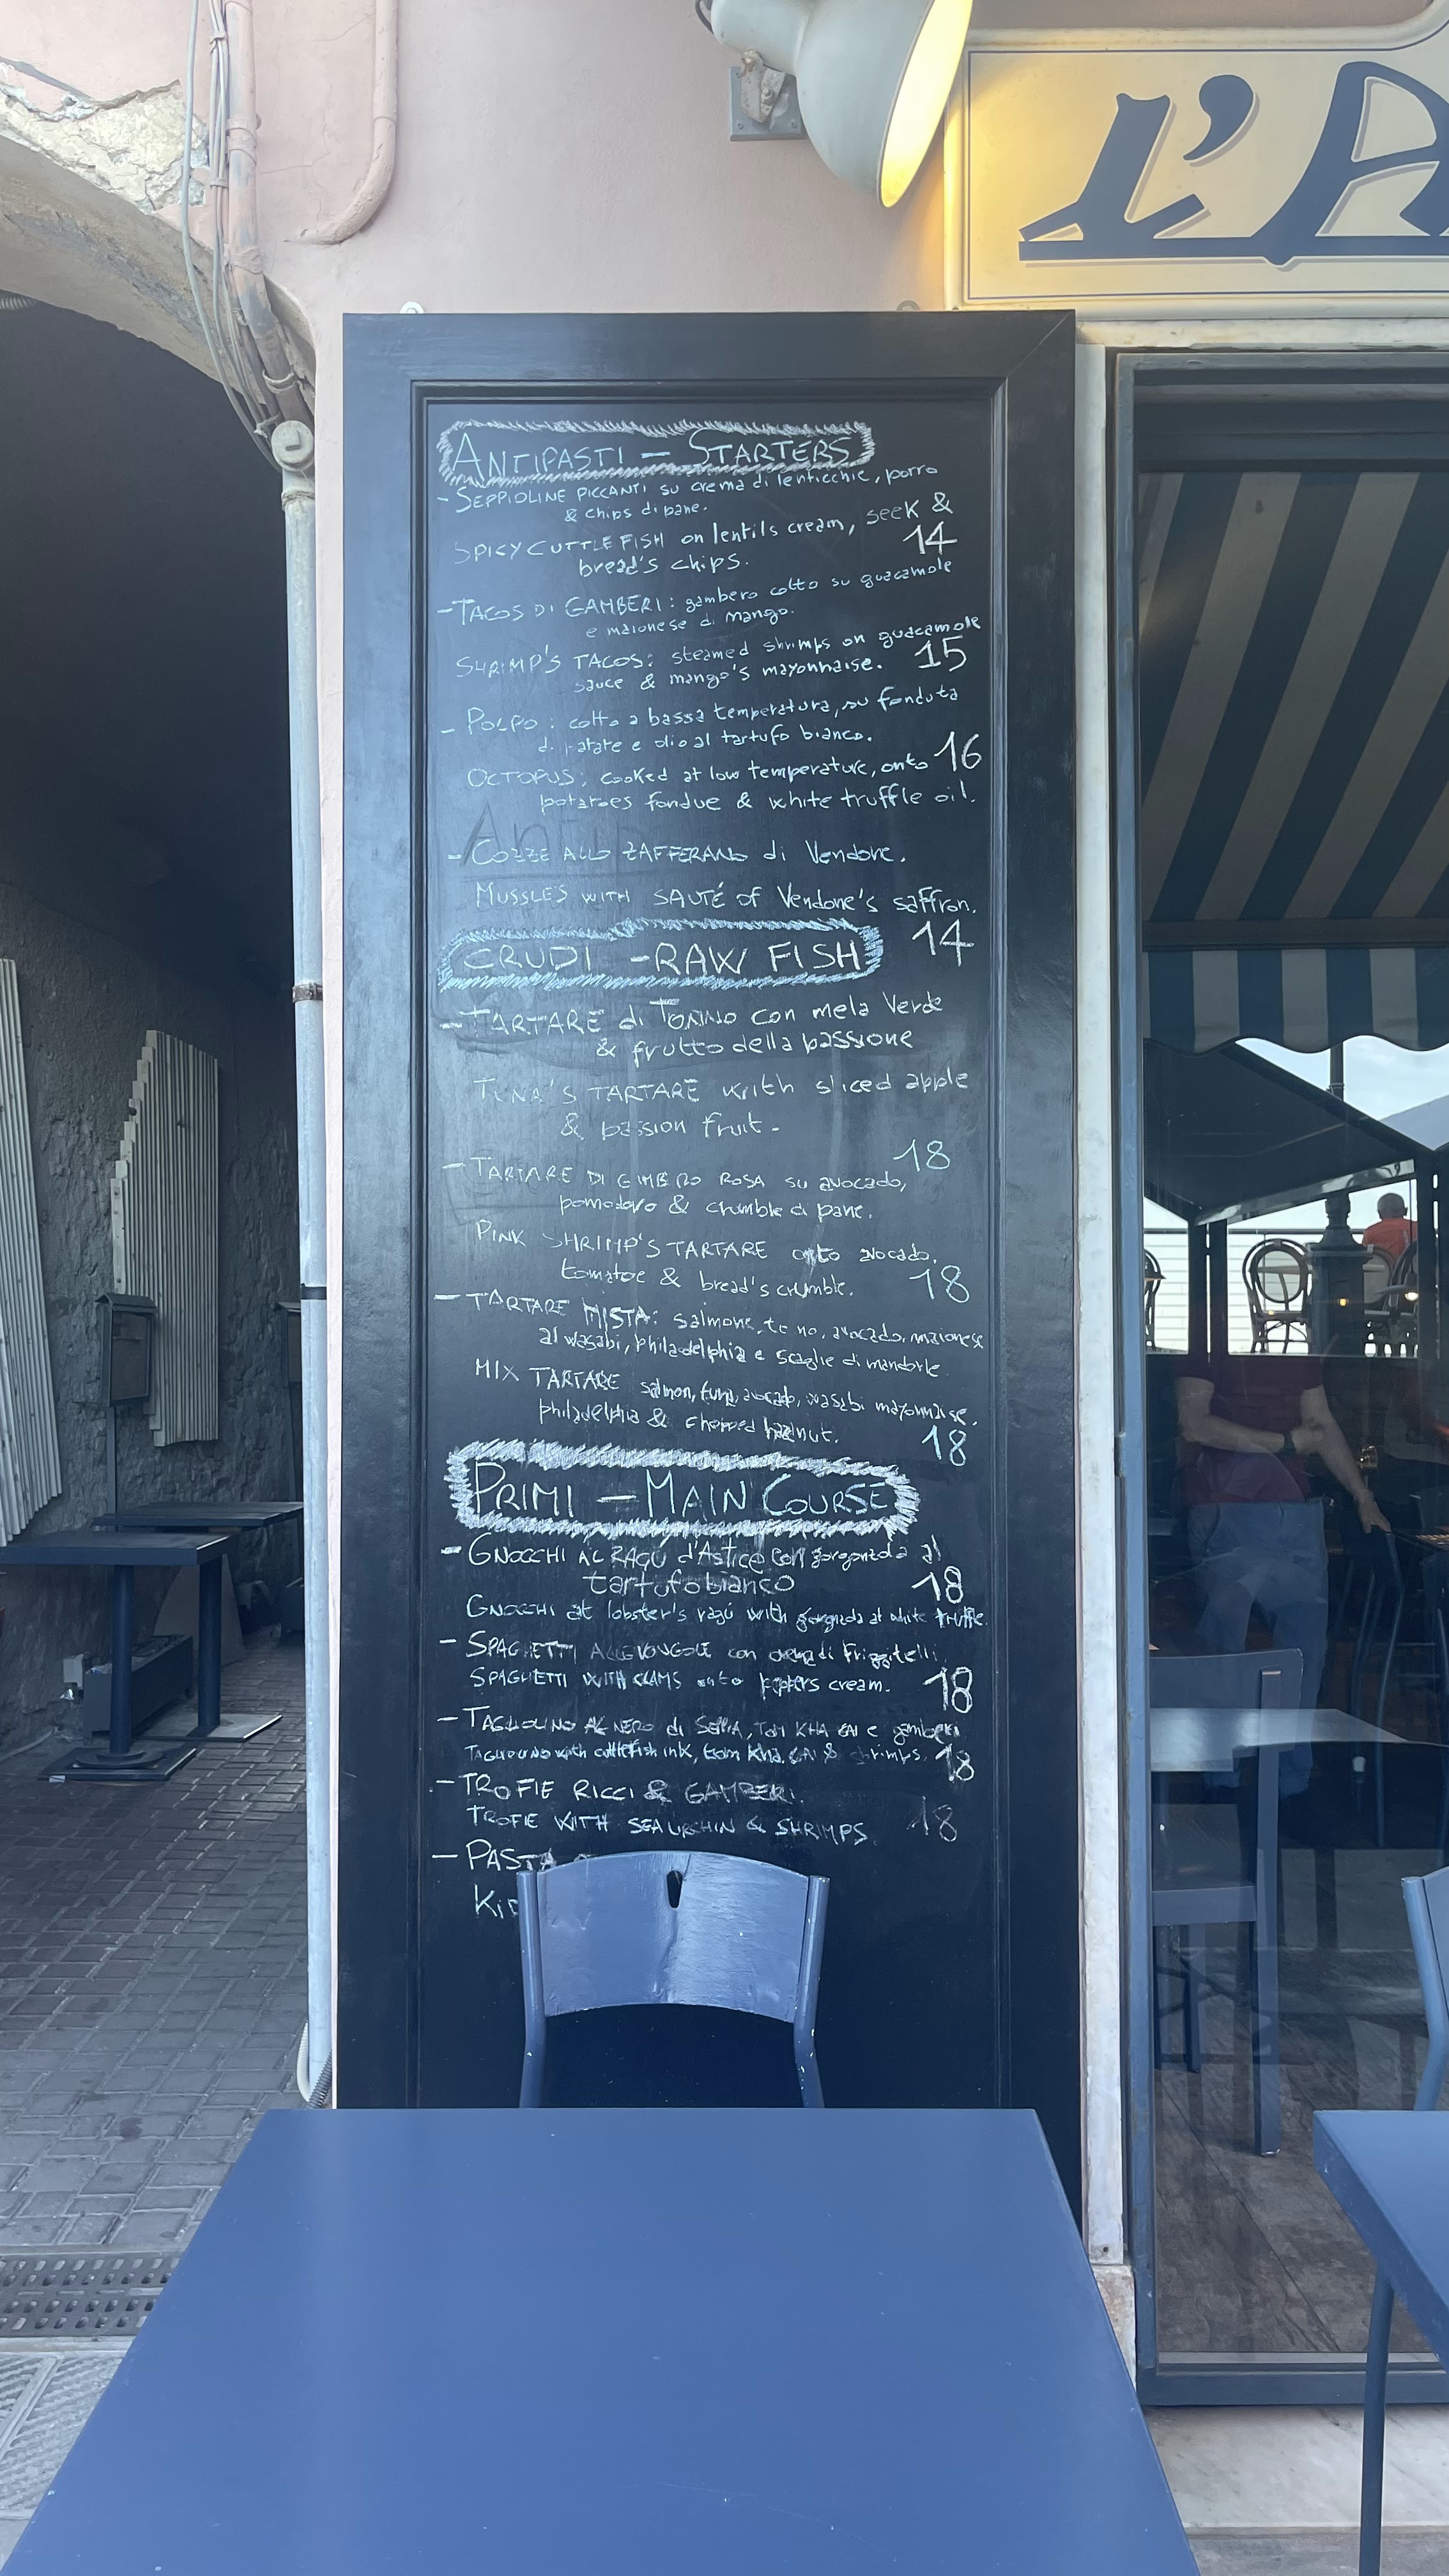 L'A
ANTIPASTI - STARTERS
- SEPPIOLINE PICCANTI su crema di lenticchie, porro
& chips di pane.
SPICY CUTTLE FISH on lentils cream, seek &
14
bread's chips.
- TACOS DI GAMBERI: gambero cotto su guacamole
e maionese di mango.
SHRIMP'S TACOS: steamed shrimps on guacamole
sauce & mango's mayonnaise. 15
- POLPO: cotto a bassa temperatura, su fonduta
di patate e olio al tartufo bianco.
OCTOPUS; cooked at low temperature, onto 16
potatoes fondue & white truffle oil.
- COZZE ALLO ZAFFERANO di Vendone.
MUSSLES WITH SAUTÉ of Vendone's saffron.
14
CRUDI - RAW FISH
- TARTARE di TONNO con mela Verde
& frutto della passione
TUNA'S TARTARE with sliced apple
& passion fruit -
18
- TARTARE DI GAMBERO ROSA su avocado,
pomodoro & crumble di pane.
PINK SHRIMP'S TARTARE onto avocado,
tomatoe & bread's crumble. 18
- TARTARE MISTA: salmone, tonno, avocado, maionese
al wasabi, philadelphia e scaglie di mandorle
MIX TARTARE salmon, tuna, avocado, wasabi mayonnaise,
philadelphia & chopped hazelnut.
18
PRIMI - MAIN COURSE
- GNOCCHI AL RAGÚ d'Astice con gorgonzola al
tartufo bianco 18
GNOCCHI at lobster's ragú with at white truffle.
- SPAGHETTI ALLE VONGOLE con crema di Friggitelli.
SPAGHETTI WITH CLAMS onto peppers cream. 18
- TAGLIOLINO AL NERO di SEPPIA, TOM KHA GAI e gamberi
TAGLIOLINO with cuttlefish ink, tom kha GAI & shrimps. 18
- TROFIE RICCI & GAMBERI.
TROFIE WITH SEA URCHIN & SHRIMPS. 18
- PASTA
Ki